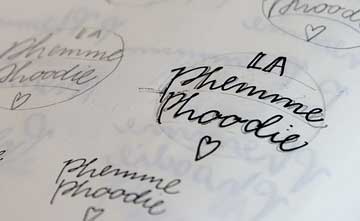 LA
phemme
phoodie
LA
phemme
phoodie
phemme
phoodie